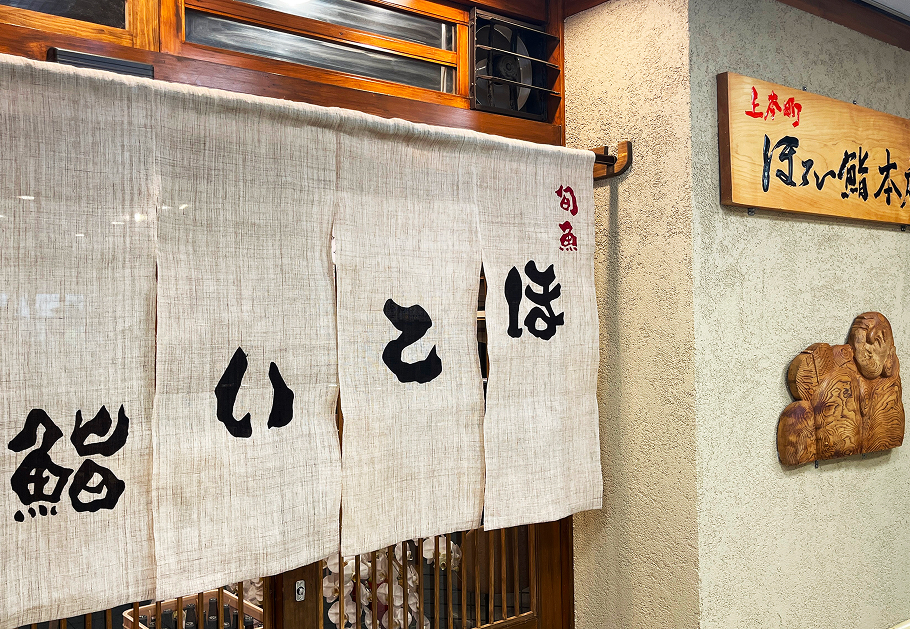 旬魚
ほてい鮨
上本町
ほてい鮨本